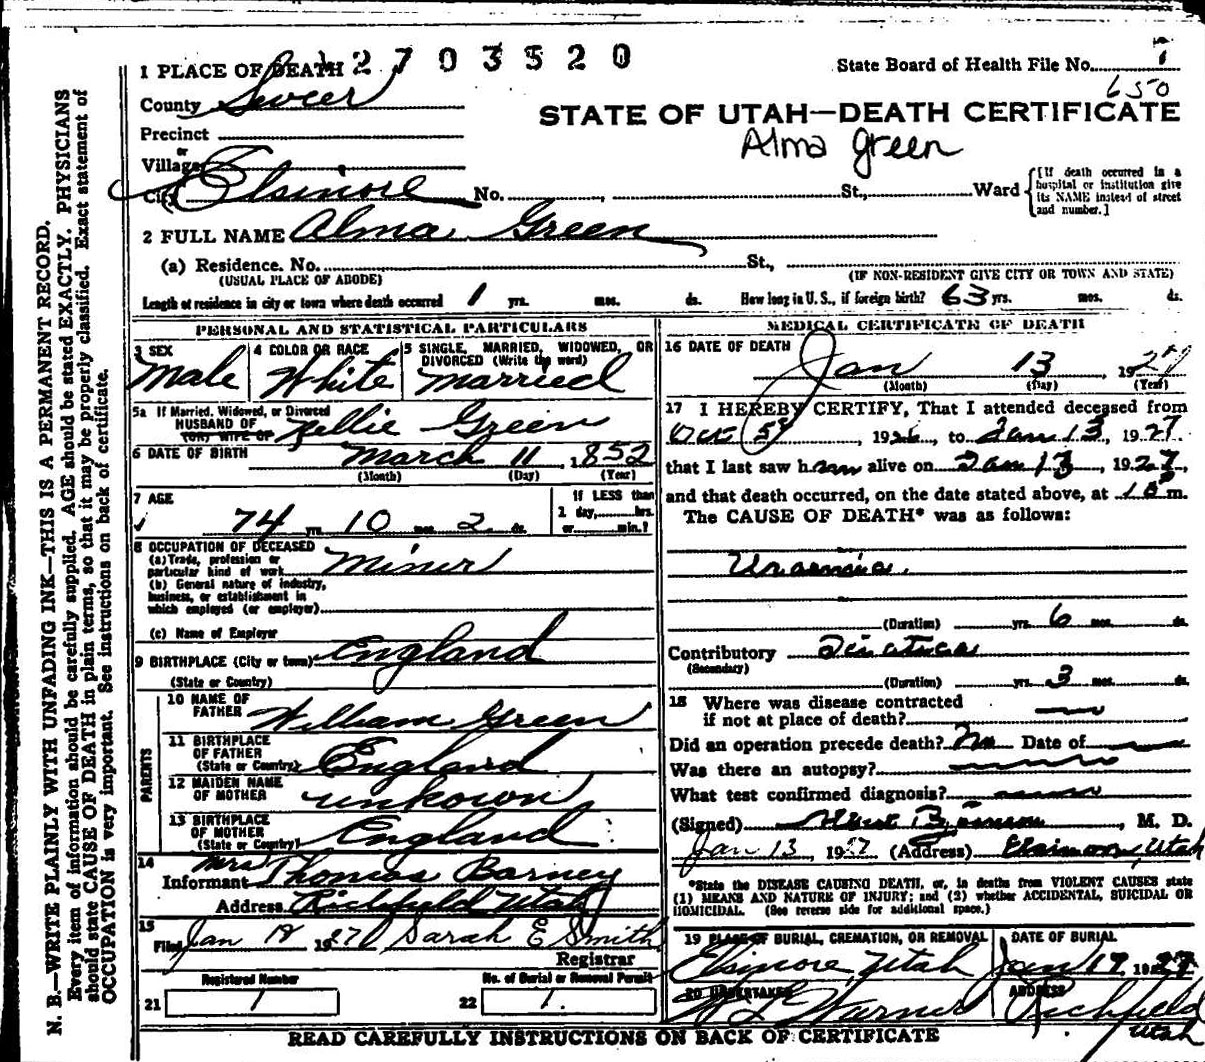 2703520
1 PLACE OF DEATH
State Board of Health File No. 7
650
County Sevier
STATE OF UTAH—DEATH CERTIFICATE
Precinct
Alma Green
or
Village
City Elsinore No. St., Ward
[If death occurred in a
hospital or institution give
its NAME instead of street
and number.]
2 FULL NAME Alma Green
(a) Residence. No. St.,
(USUAL PLACE OF ABODE) (IF NON-RESIDENT GIVE CITY OR TOWN AND STATE)
Length of residence in city or town where death occurred 1 yrs. mos. ds. How long in U. S., if foreign birth? 63 yrs. mos. ds.
PERSONAL AND STATISTICAL PARTICULARS
3 SEX
Male
4 COLOR OR RACE
White
5 SINGLE, MARRIED, WIDOWED, OR
DIVORCED (Write the word)
married
5a If Married, Widowed, or Divorced
HUSBAND OF
(OR) WIFE OF Nellie Green
6 DATE OF BIRTH March 11, 1852
(Month) (Day) (Year)
7 AGE
74 yrs. 10 mos. 2 ds.
If LESS than
1 day, hrs.
or min.?
8 OCCUPATION OF DECEASED
(a) Trade, profession or
particular kind of work Miner
(b) General nature of industry,
business, or establishment in
which employed (or employer)
(c) Name of Employer
9 BIRTHPLACE (City or town) England
(State or Country)
PARENTS
10 NAME OF
FATHER William Green
11 BIRTHPLACE
OF FATHER
(State or Country) England
12 MAIDEN NAME
OF MOTHER unkown
13 BIRTHPLACE
OF MOTHER
(State or Country) England
14
Informant Mrs Thomas Barney
Address Richfield Utah
15
Filed Jan 1927 Sarah E Smith
Registrar
Registered Number
21 1
No. of Burial or Removal Permit
22 1.
MEDICAL CERTIFICATE OF DEATH
16 DATE OF DEATH
Jan 13, 1927
(Month) (Day) (Year)
17 I HEREBY CERTIFY, That I attended deceased from
Oct 5, 1926, to Jan 13, 1927
that I last saw him alive on Jan 13, 1927,
and that death occurred, on the date stated above, at m.
The CAUSE OF DEATH* was as follows:
Uraemia.
(Duration) yrs. 6 mos. ds.
Contributory
(Secondary)
(Duration) yrs. 3 mos. ds.
18 Where was disease contracted
if not at place of death?
Did an operation precede death? No Date of
Was there an autopsy?
What test confirmed diagnosis?
(Signed) , M. D.
Jan 13 1927 (Address) Elsinore, Utah
*State the DISEASE CAUSING DEATH, or, in deaths from VIOLENT CAUSES state
(1) MEANS AND NATURE OF INJURY; and (2) whether ACCIDENTAL, SUICIDAL OR
HOMICIDAL. (See reverse side for additional space.)
19 PLACE OF BURIAL, CREMATION, OR REMOVAL
Elsinore Utah
DATE OF BURIAL
Jan 1927
20 UNDERTAKER
Warner
ADDRESS
Richfield
Utah
READ CAREFULLY INSTRUCTIONS ON BACK OF CERTIFICATE
N. B.—WRITE PLAINLY WITH UNFADING INK—THIS IS A PERMANENT RECORD.
Every item of information should be carefully supplied. AGE should be stated EXACTLY. PHYSICIANS
should state CAUSE OF DEATH in plain terms, so that it may be properly classified. Exact statement of
OCCUPATION is very important. See instructions on back of certificate.